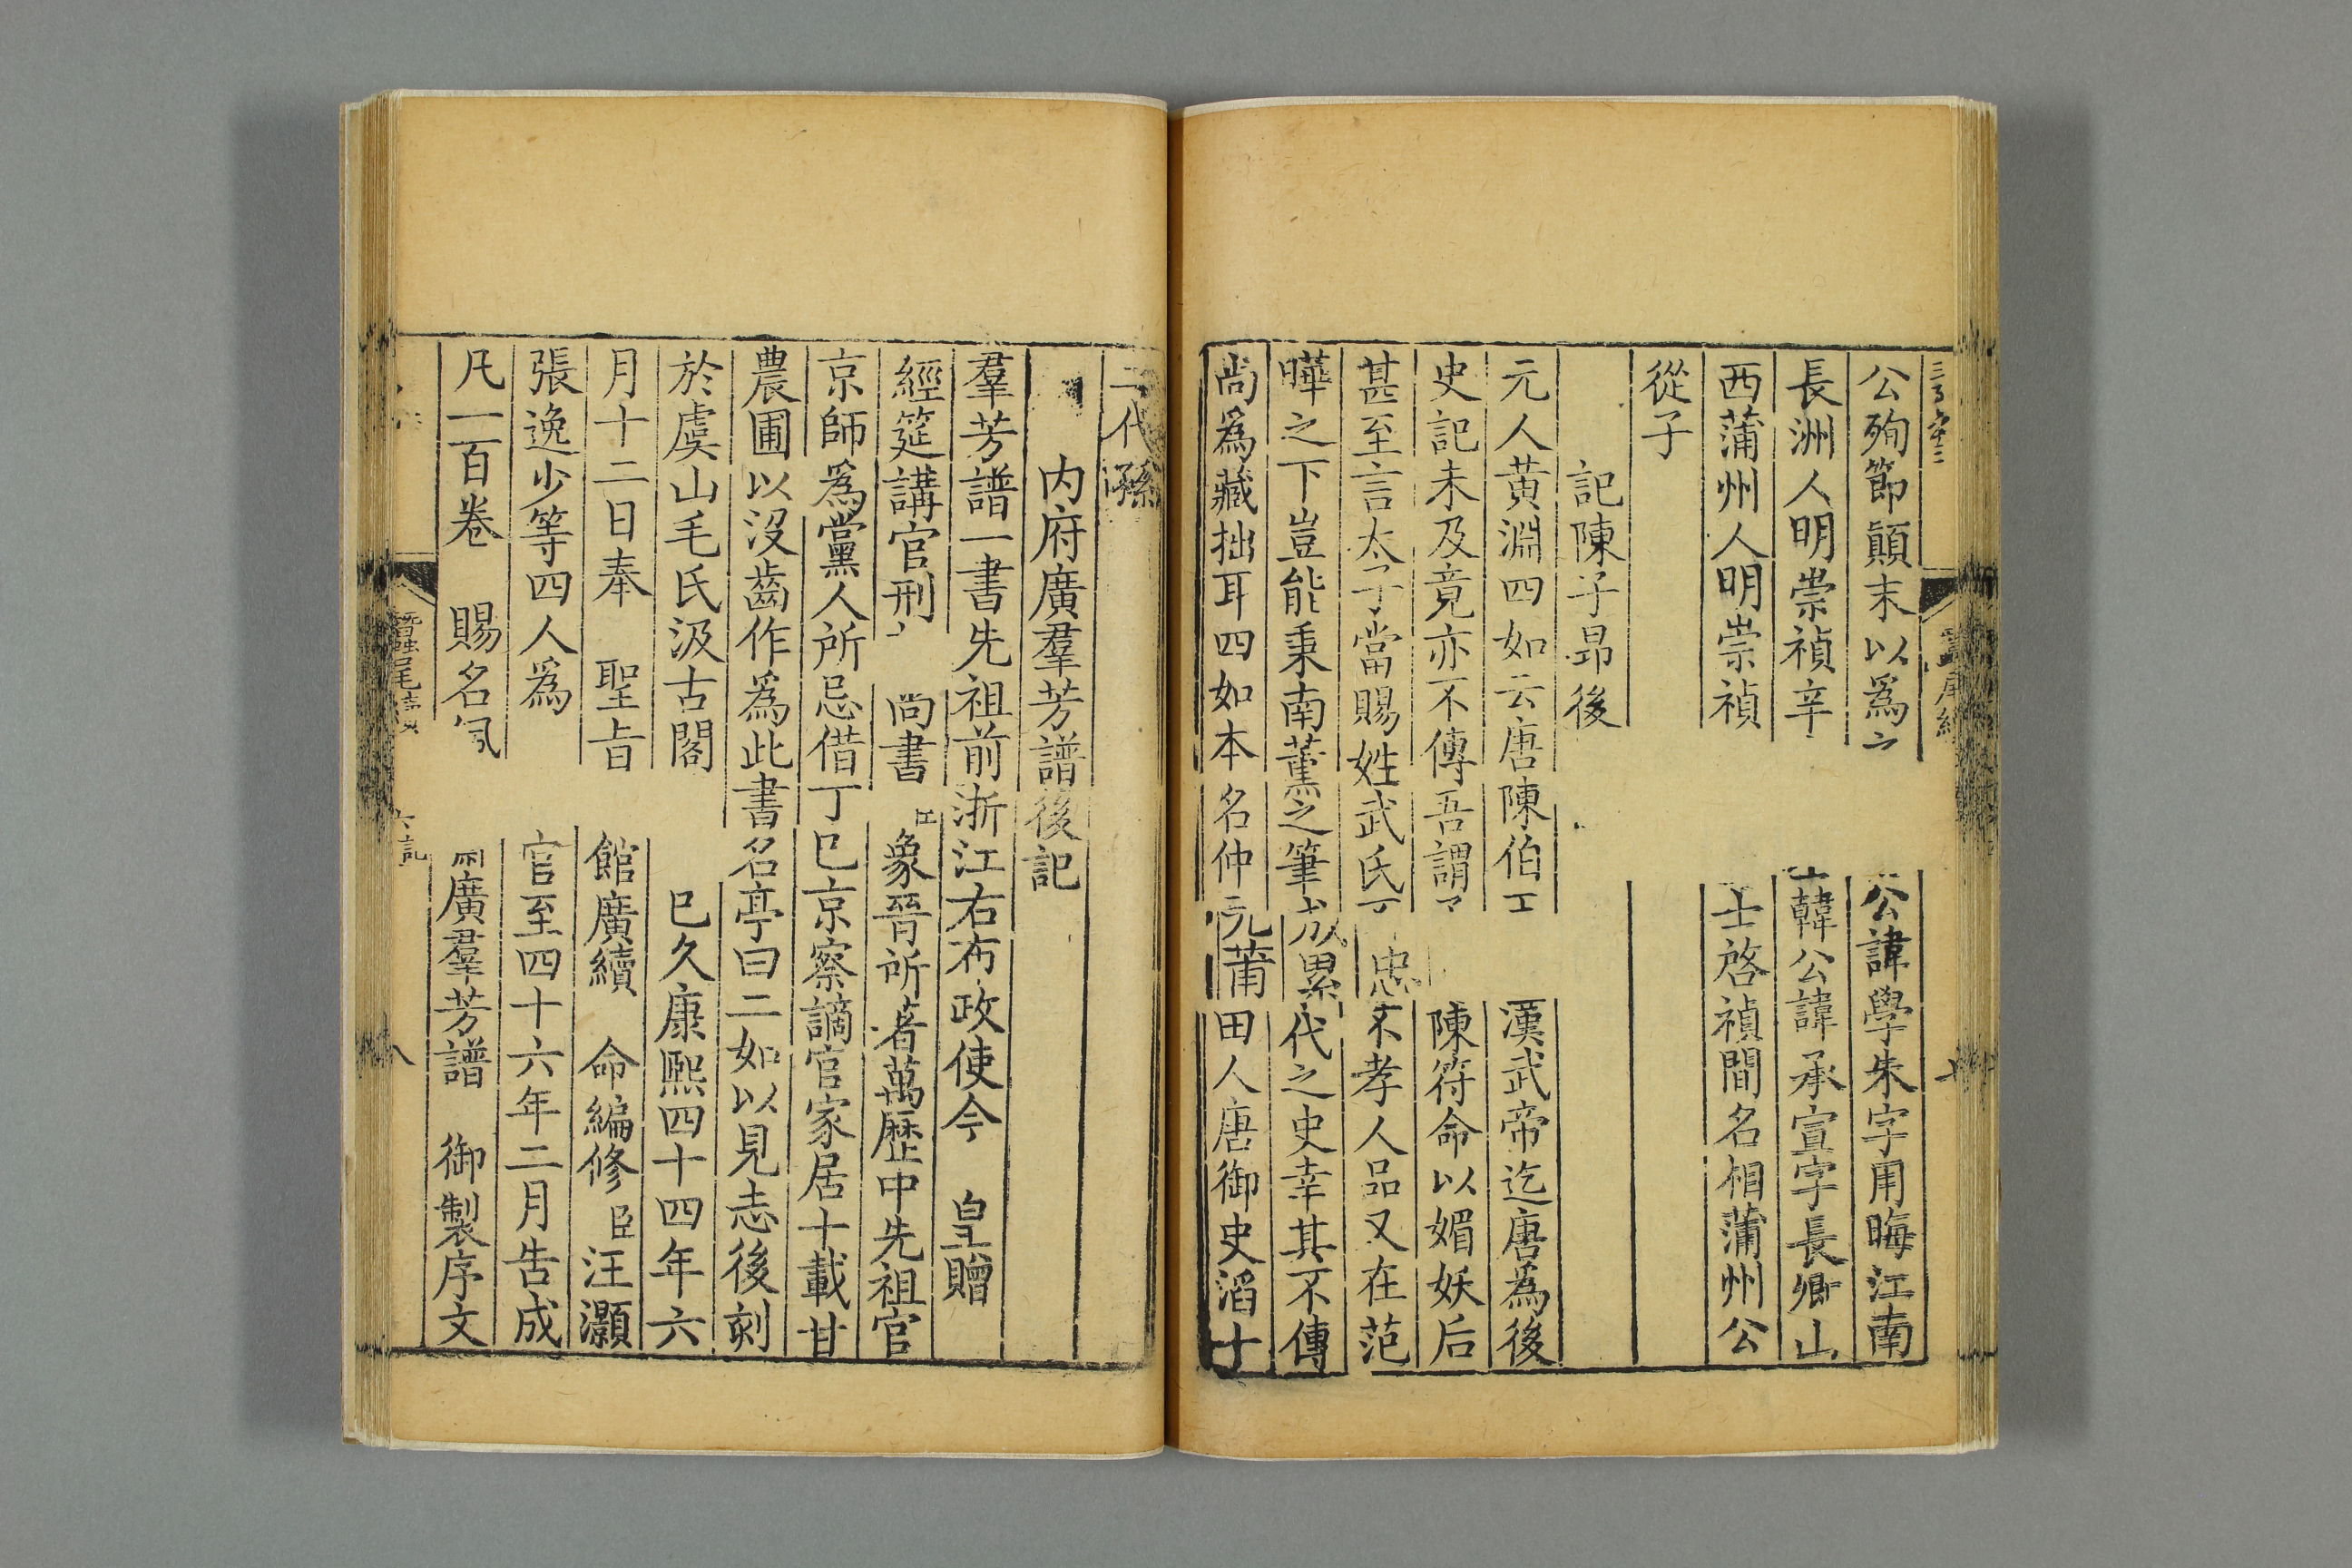 公殉節顛末以爲 公諱學朱字用晦江南
長洲人明崇禎辛 韓公諱承宣字長卿山
西蒲州人明崇禎 士啓禎間名相蒲州公
從子
記陳子昻後
元人黄淵四如云唐陳伯 漢武帝迄唐為後
史記未及竟亦不傳吾謂 陳符命以媚妖后
甚至言太子當賜姓武氏 忠不孝人品又在范
曄之下豈能秉南董之筆成累代之史幸其不傳
尚爲藏拙耳四如本名仲元莆田人唐御史滔十
二代孫
内府廣羣芳譜後記
羣芳譜一書先祖前浙江右布政使今 皇贈
經筵講官刑 尚書 象晉所著萬歷中先祖官
京師爲黨人所忌借丁巳京察謫官家居十載甘
農圃以沒齒作爲此書名亭曰二如以見志後刻
於虞山毛氏汲古閣 巳久康熙四十四年六
月十二日奉 聖旨 館廣續 命編修臣汪灝
張逸少等四人爲 官至四十六年二月告成
凡一百卷 賜名 廣羣芳譜 御製序文
蠶尾續 八